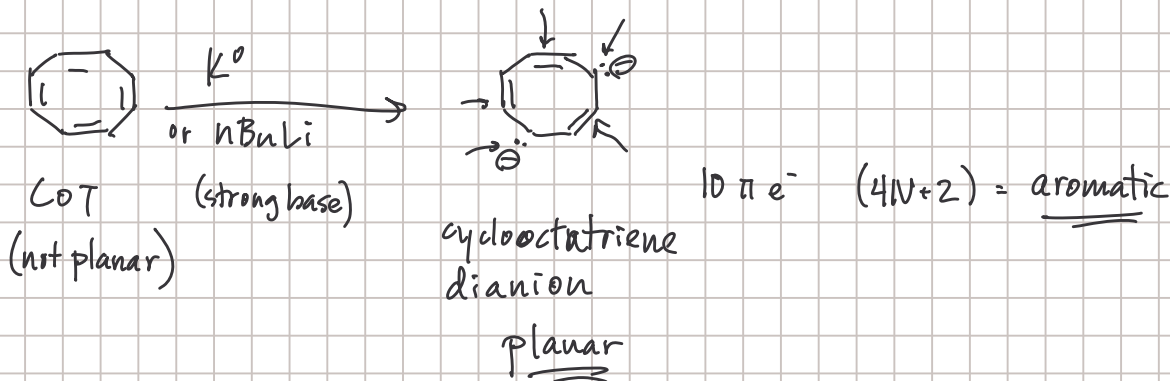 K⁰
or nBuLi
(strong base)
COT
(not planar)
:⊖
⊖
cyclooctatriene
dianion
planar
10 π e⁻ (4N+2) = aromatic